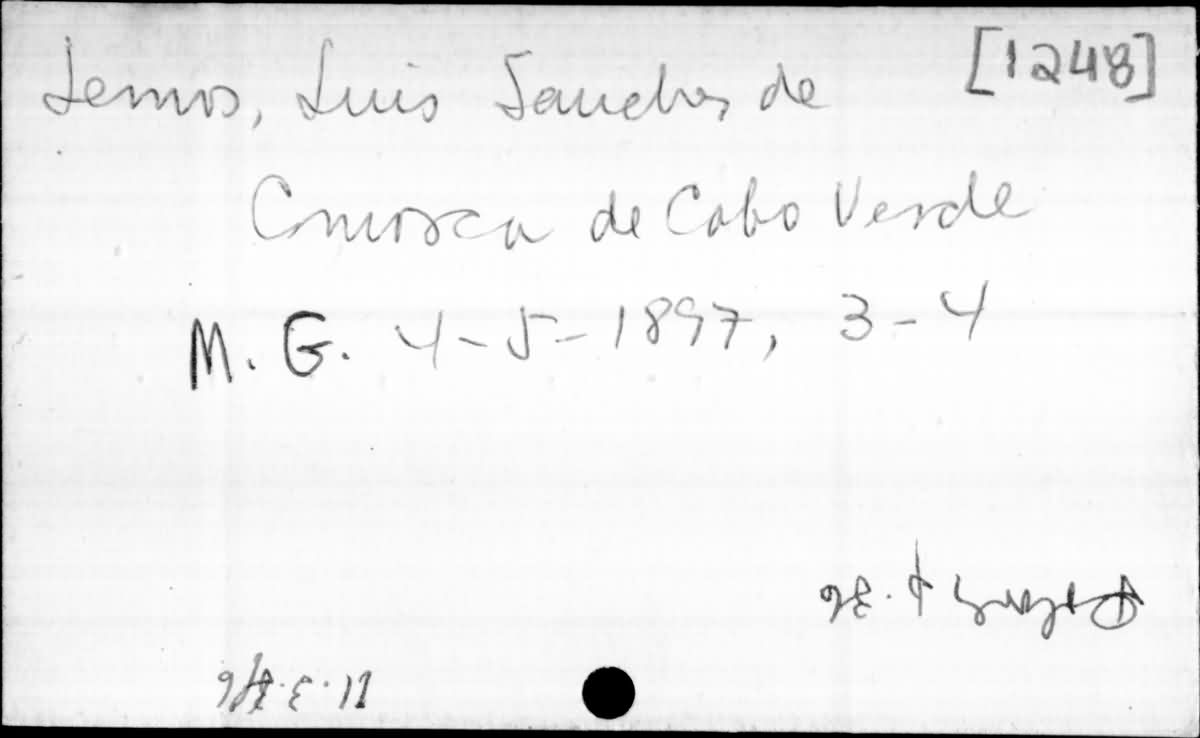 [1248]
Lemos, Luis Sanches de
Comarca de Cabo Verde
M. G. 4-5-1897, 3-4